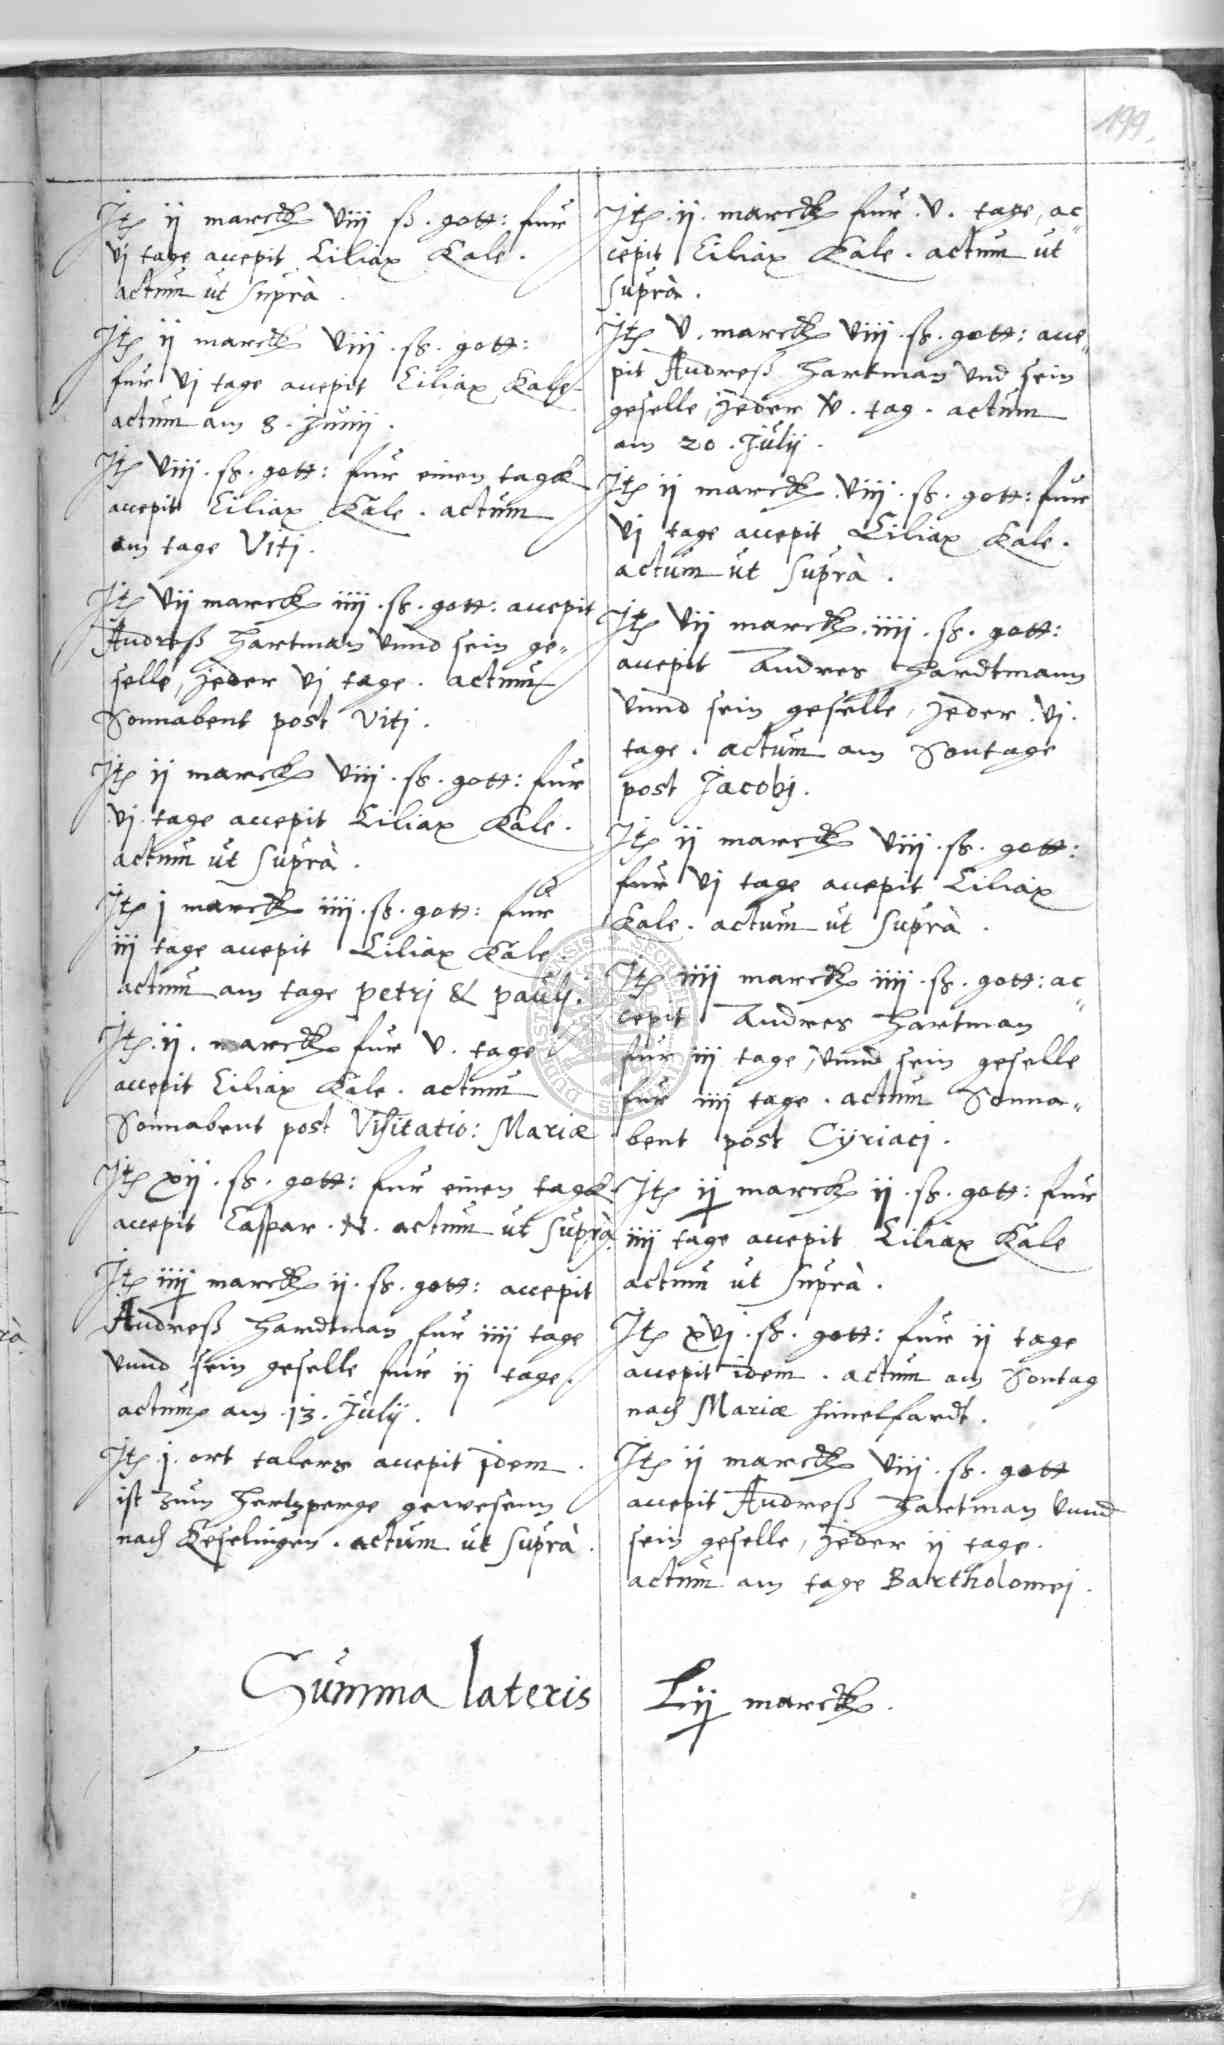 199.
Jtē ij marck viij ß. gott: fuͤr
vj tage accepit Ciliax Kale.
actum ut suprà.
Jtē ij marck viij. ß. gott:
fuͤr vj tage accepit Ciliax Kale
actum am 8. Junij.
Jtē viij. ß. gott: fur einen tagk
accepit Ciliax Kale. actum
am tage Vitj.
Jtē vij marck iiij. ß. gott: accepit
Andreß Hartman vnnd sein ge=
selle, Jeder vj tage. actum
Sonnabent post Vitj.
Jtē ij marck viij. ß. gott: fur
vj. tage accepit Ciliax Kale.
actum ut suprà.
Jtē j marck iiij. ß. gott: fur
iij tage accepit Ciliax Kale.
actum am tage petrj & paulj.
Jtē. ij. marck fur v. tage
accepit Ciliax Kale. actum
Sonnabent post Visitatio: Mariæ.
Jtē xij. ß. gott: fur einen tagk
accepit Caspar. N. actum ut suprà.
Jtē iiij marck ij. ß. gott: accepit
Andreß Hardtman fur iiij tage
vnnd sein geselle fur ij tage.
actum am. 13. Julij.
Jtē. j. ort talers accepit idem.
ist zum Hertzperge gewesenn
nach Keselingen. actum ut suprà.
Jtē. ij. marck fur. v. tage, ac=
cepit Ciliax Kale. actum ut
suprà.
Jtē v. marck viij. ß. gott: acce=
pit Andreß Hartman vnd sein
geselle, Jeder v. tag. actum
am 20. Julij.
Jtē ij marck. viij. ß. gott: fur
vj tage accepit Ciliax Kale.
actum ut suprà.
Jtē vij marck. iiij. ß. gott:
accepit Andres Hardtmann
vnnd sein geselle, Jeder. vj.
tage. actum am Sontage
post Jacobj.
Jtē ij marck viij. ß. gott:
fur vj tage accepit Ciliax
Kale. actum ut suprà.
Jtē iiij marck iiij. ß. gott: ac=
cepit Andres Hartman
fur iij tage, vnnd sein geselle
fur iiij tage. actum Sonna=
bent post Cyriacj.
Jtē ij marck ij. ß. gott: fur
iiij tage accepit Ciliax Kale
actum ut suprà.
Jtē xvj. ß. gott: fur ij tage
accepit idem. actum am Sontag
nach Mariæ himelfardt.
Jtē ij marck viij. ß. gott
accepit Andreß Hartman vnnd
sein geselle, Jeder ij tage.
actum am tage Bartholomej.
Summa lateris Lij marck.